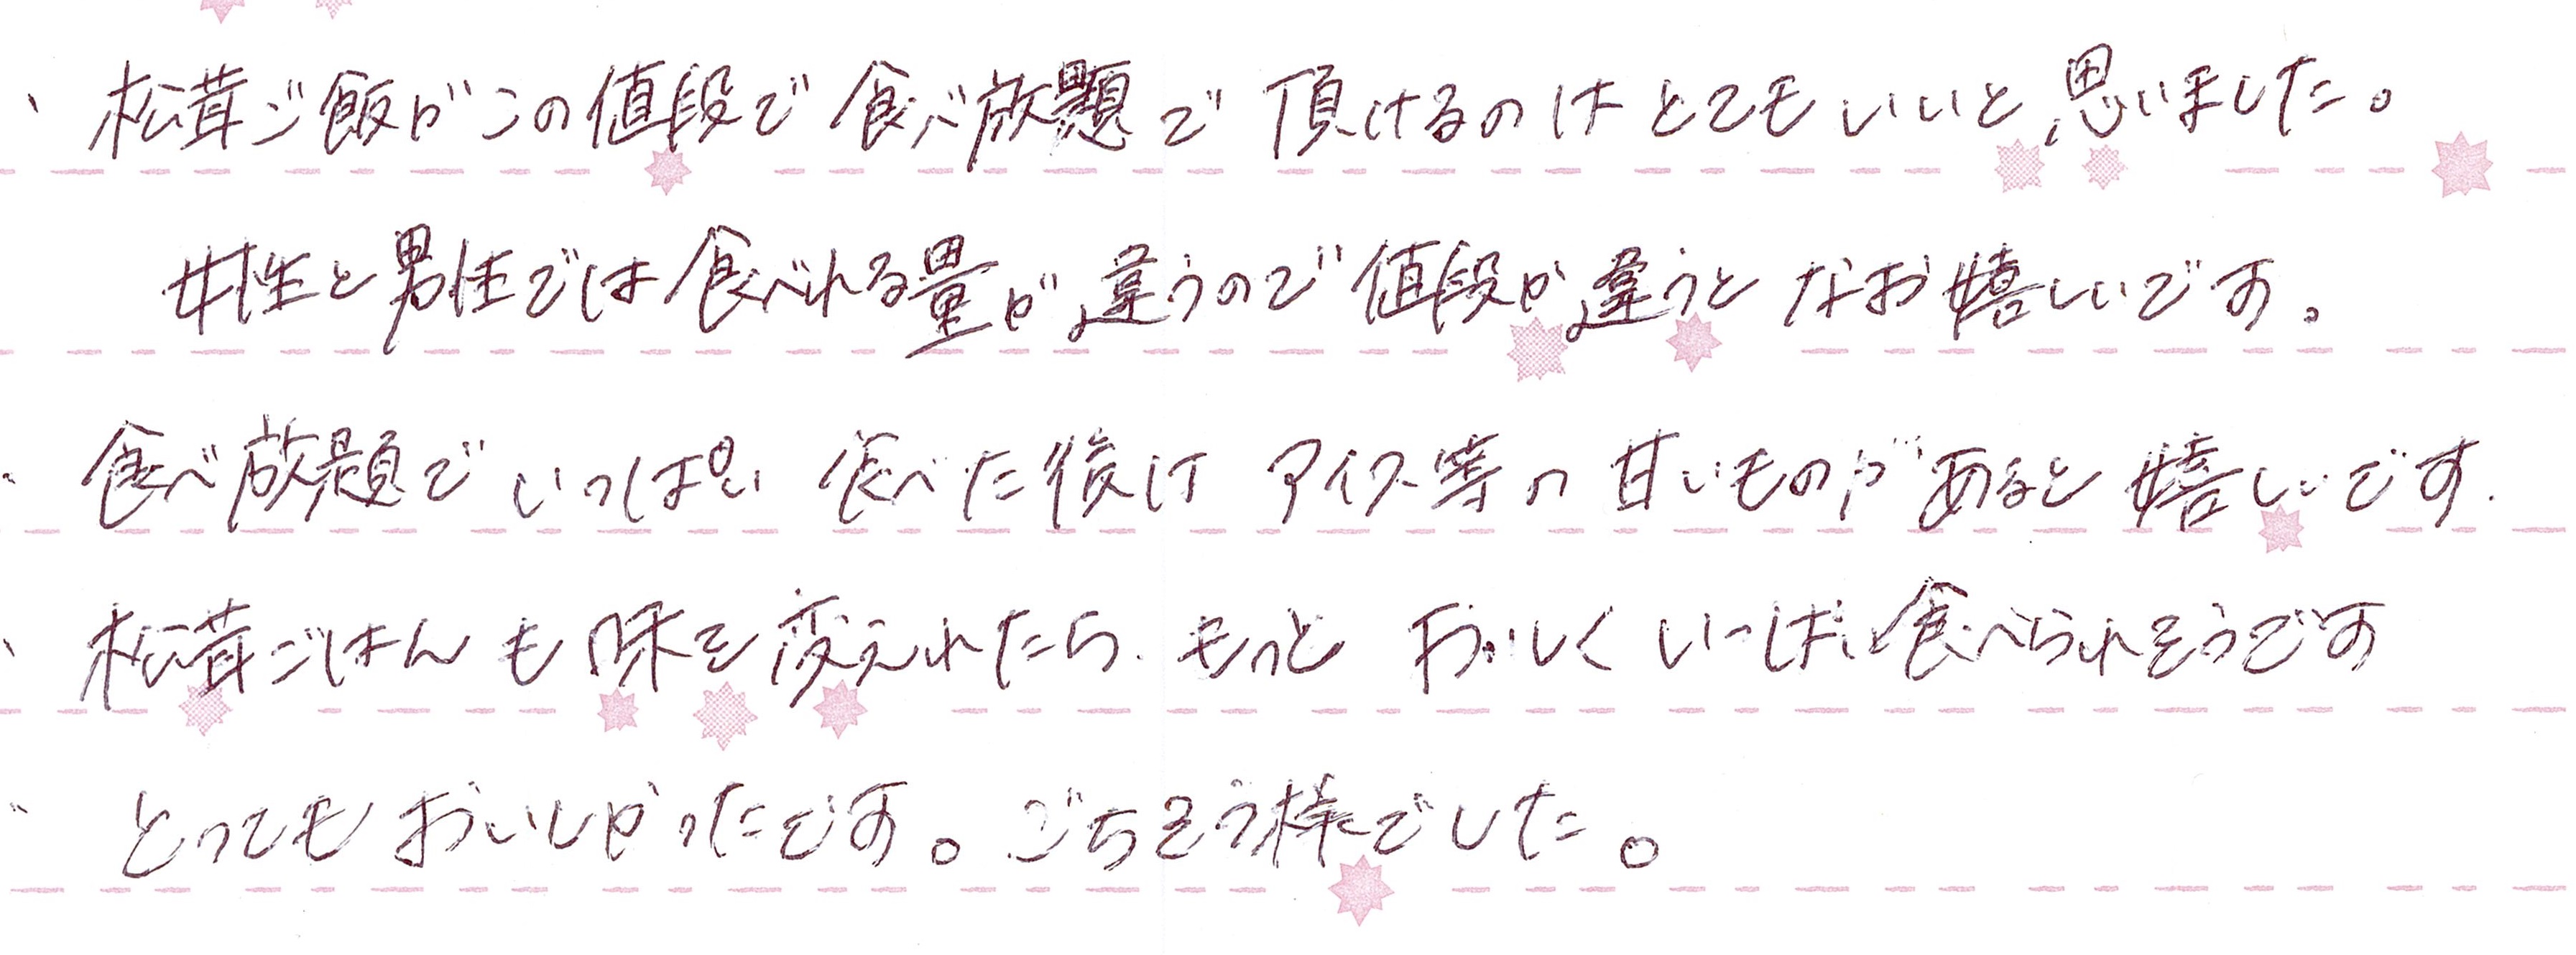 、松茸ご飯がこの値段で食べ放題で頂けるのはとてもいいと思いました。
女性と男性では食べれる量が違うので値段が違うとなお嬉しいです。
・食べ放題でいっぱい食べた後はアイス等の甘いものがあると嬉しいです.
、松茸ごはんも味を変えれたら.もっとおいしくいっぱい食べられそうです
とってもおいしかったです。ごちそう様でした。